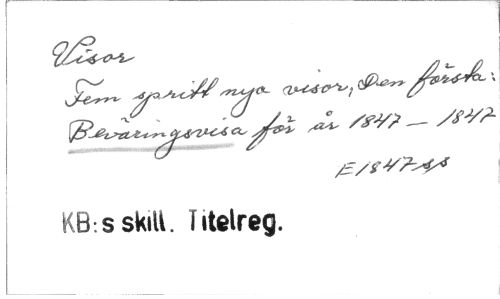 Visor
Fem spritt nya visor, Den första:
Beväringsvisa för år 1847 — 1847
E 1847
KB:s skill. Titelreg.